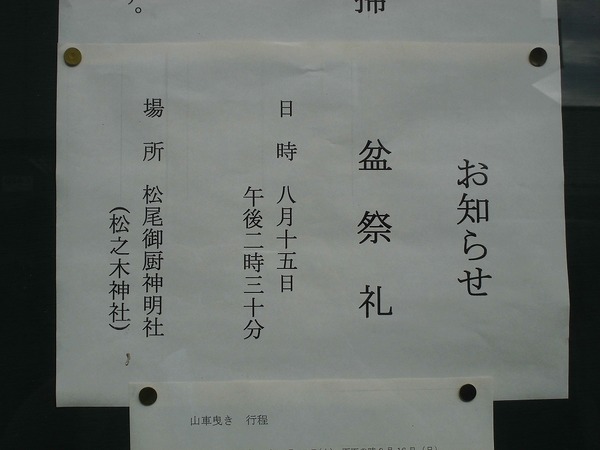 お知らせ
盆祭礼
日時 八月十五日
午後二時三十分
場所 松尾御厨神明社
(松之木神社)
山車曳き 行程